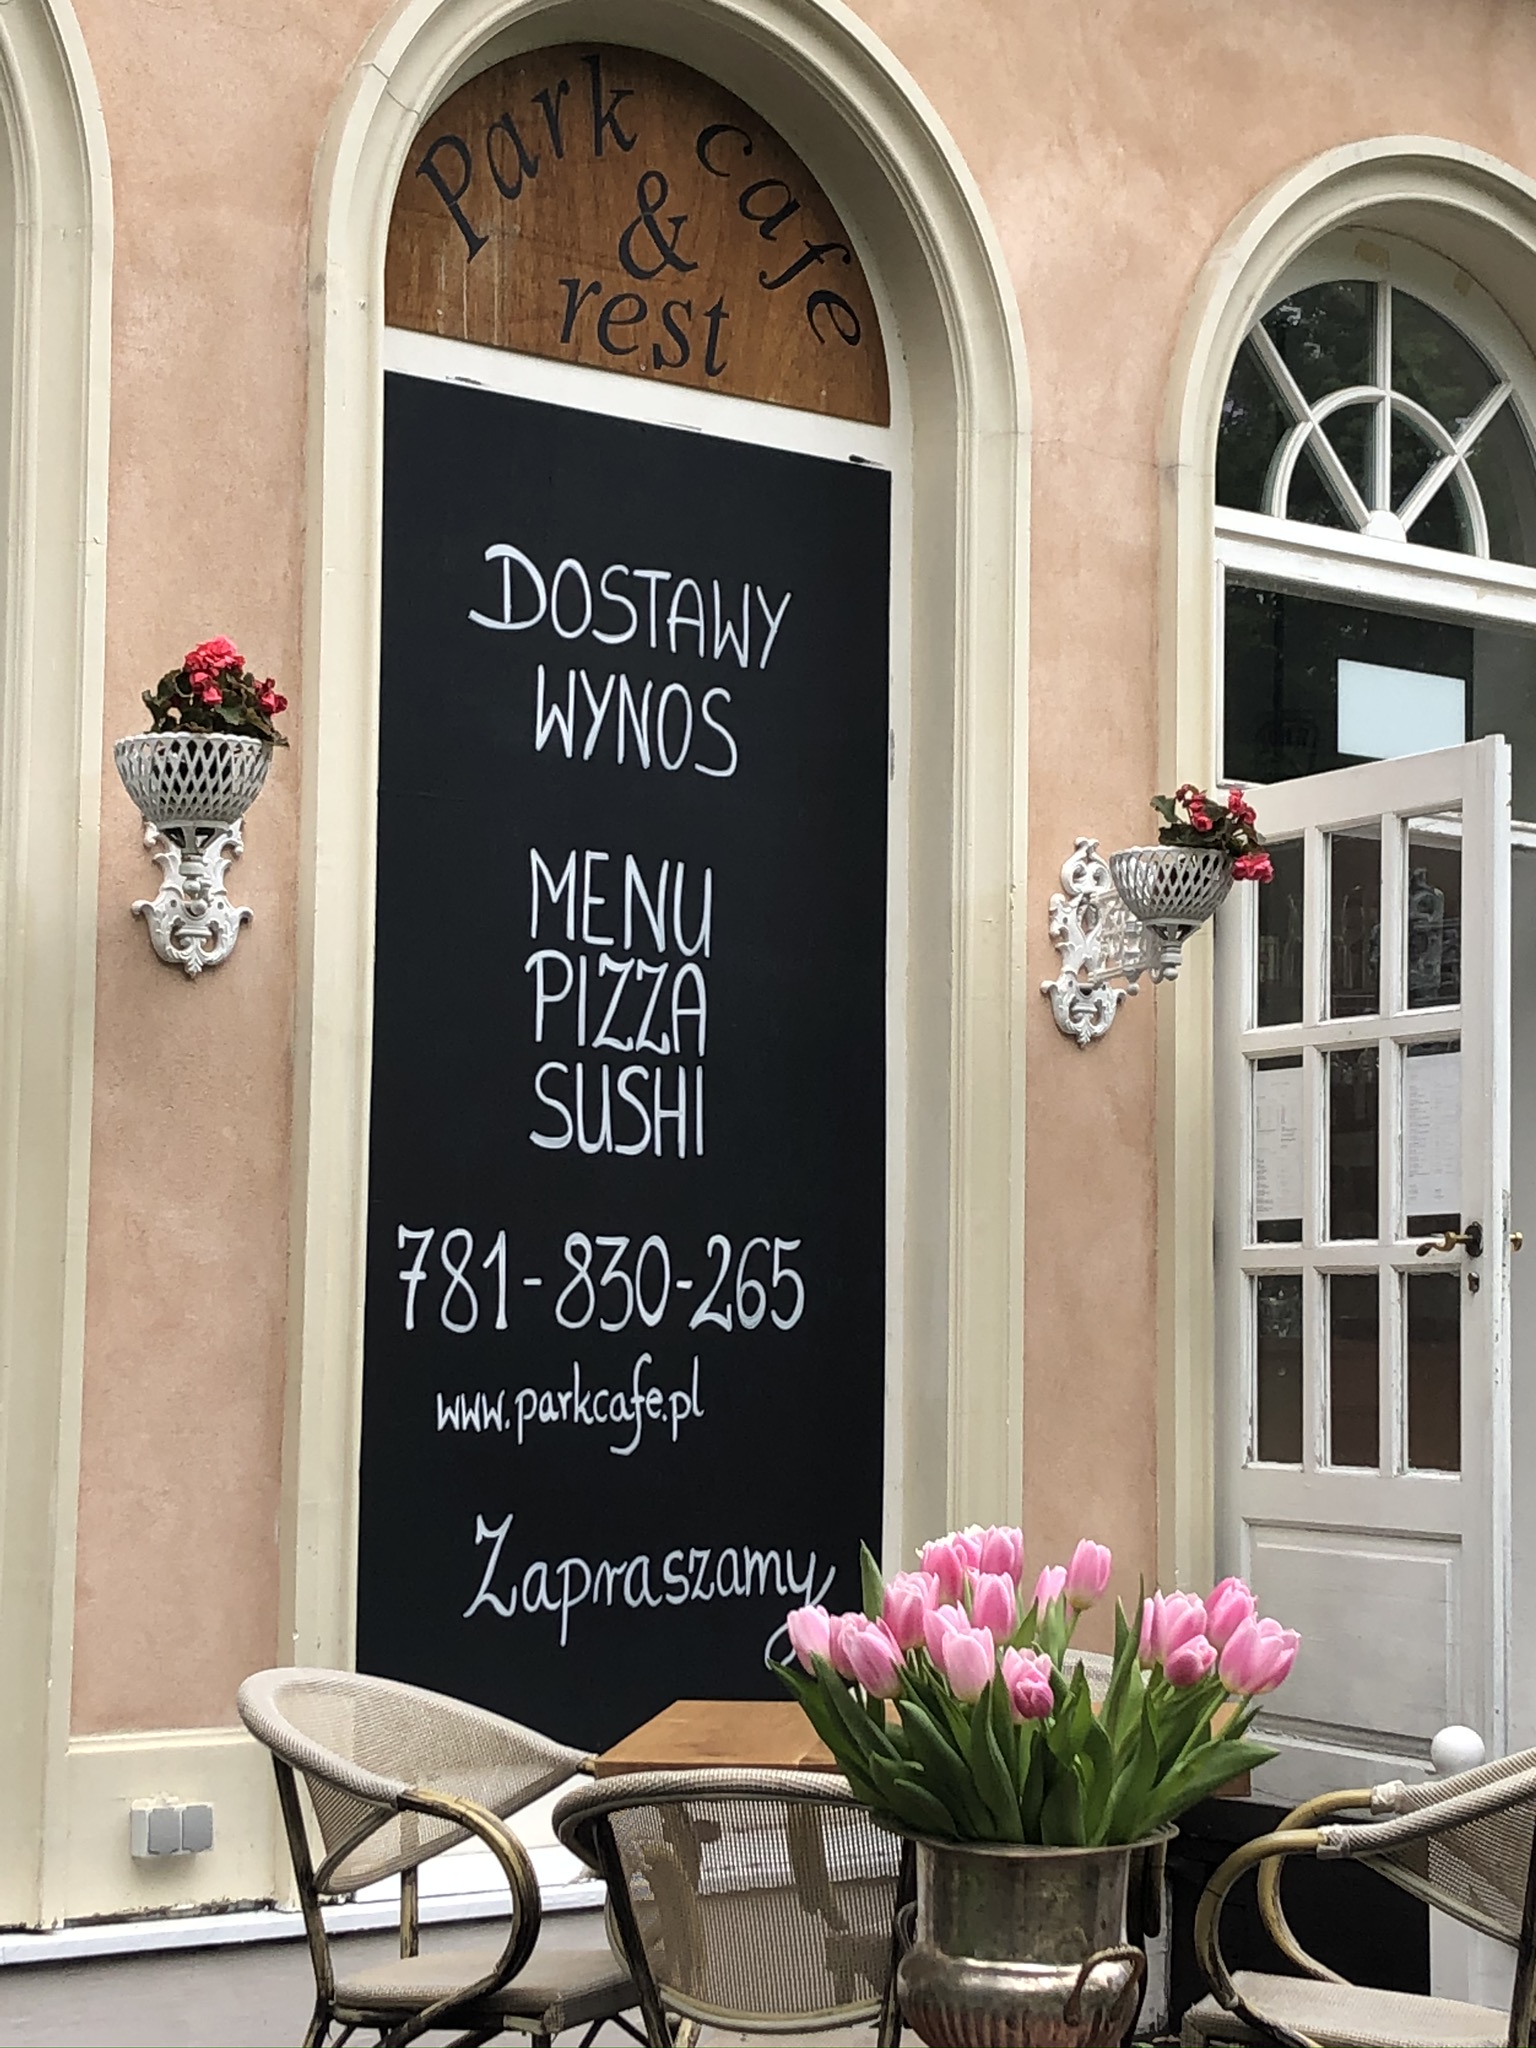 Park cafe
&
rest
DOSTAWY
WYNOS
MENU
PIZZA
SUSHI
781-830-265
www.parkcafe.pl
Zapraszamy